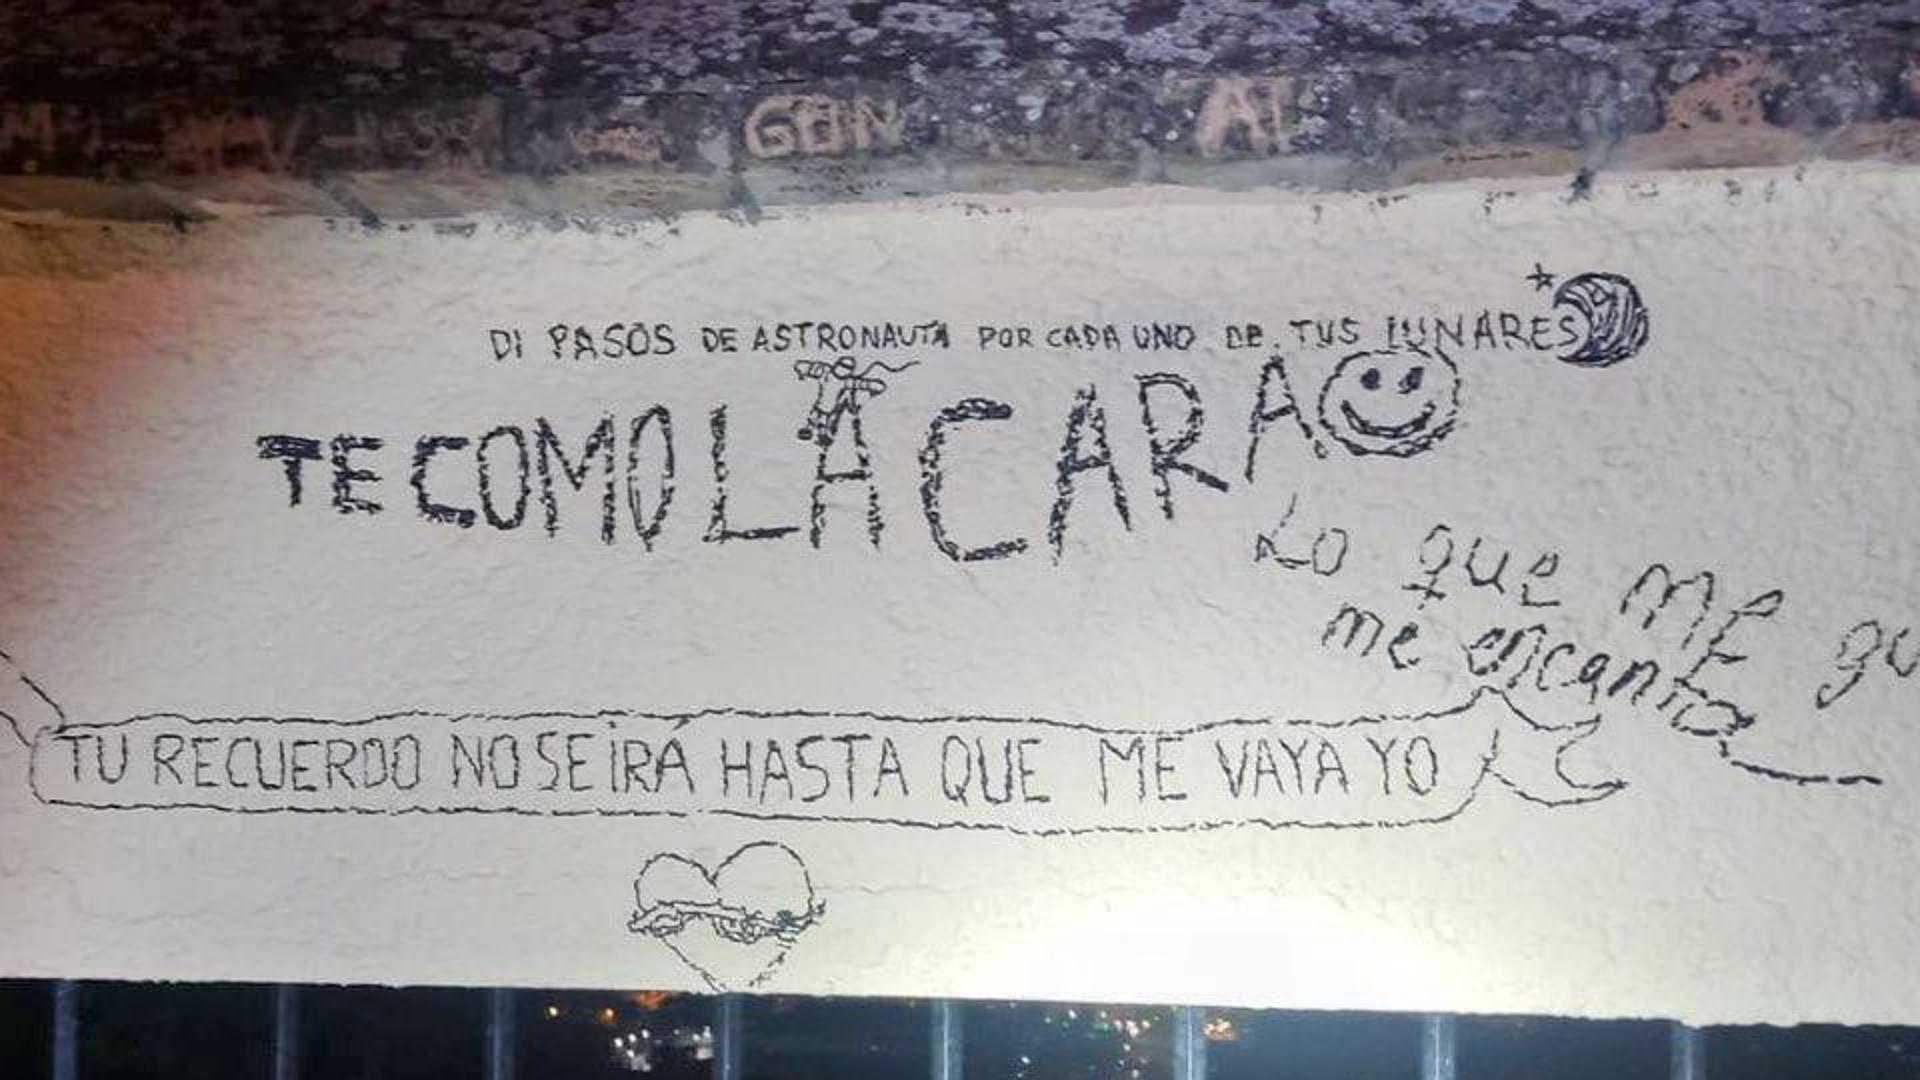 GÖN
AI
DI PASOS DE ASTRONAUTA POR CADA UNO DE TUS LUNARES
TE COMO LA CARA
Lo que ME gu
me encanta
TU RECUERDO NO SE IRÁ HASTA QUE ME VAYA YO